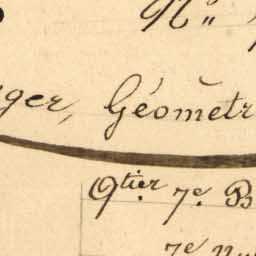 N°"
ger, Géomètr
Qtier 7e. B
7e